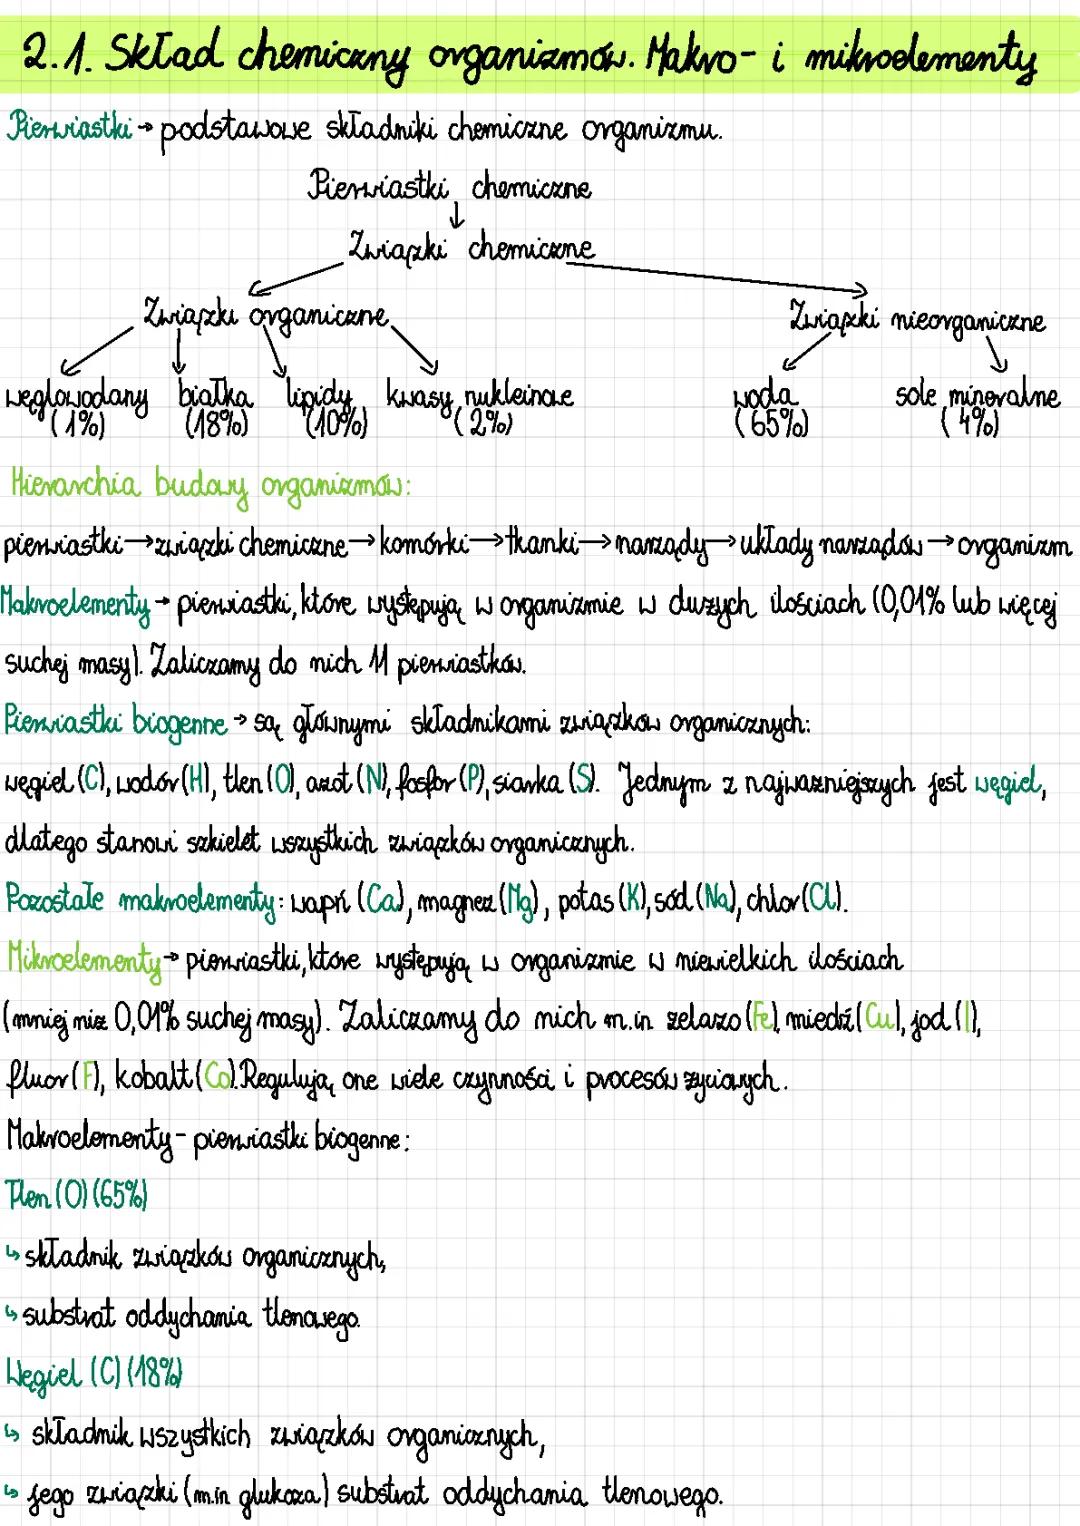 2.1. Skład chemiczny organizmów. Makro- i mikroelementy
Pierwiastki → podstawowe składniki chemiczne organizmu.
Pierwiastki chemiczne
↓
Związki chemiczne
Związki organiczne Związki nieorganiczne
węglowodany białka lipidy kwasy nukleinowe woda sole mineralne
(1%) (18%) (10%) (2%) (65%) (4%)
Hierarchia budowy organizmów:
pierwiastki → związki chemiczne → komórki → tkanki → narządy → układy narządów → organizm
Makroelementy → pierwiastki, które występują w organizmie w dużych ilościach (0,01% lub więcej
suchej masy). Zaliczamy do nich 11 pierwiastków.
Pierwiastki biogenne → są głównymi składnikami związków organicznych:
węgiel (C), wodór (H), tlen (O), azot (N), fosfor (P), siarka (S). Jednym z najważniejszych jest węgiel,
dlatego stanowi szkielet wszystkich związków organicznych.
Pozostałe makroelementy: wapń (Ca), magnez (Mg), potas (K), sód (Na), chlor (Cl).
Mikroelementy → pierwiastki, które występują w organizmie w niewielkich ilościach
(mniej niż 0,01% suchej masy). Zaliczamy do nich m.in żelazo (Fe), miedź (Cu), jod (I),
fluor (F), kobalt (Co). Regulują one wiele czynności i procesów życiowych.
Makroelementy - pierwiastki biogenne:
Tlen (O) (65%)
↳ składnik związków organicznych,
↳ substrat oddychania tlenowego.
Węgiel (C) (18%)
↳ składnik wszystkich związków organicznych,
↳ jego związki (m.in glukoza) substrat oddychania tlenowego.